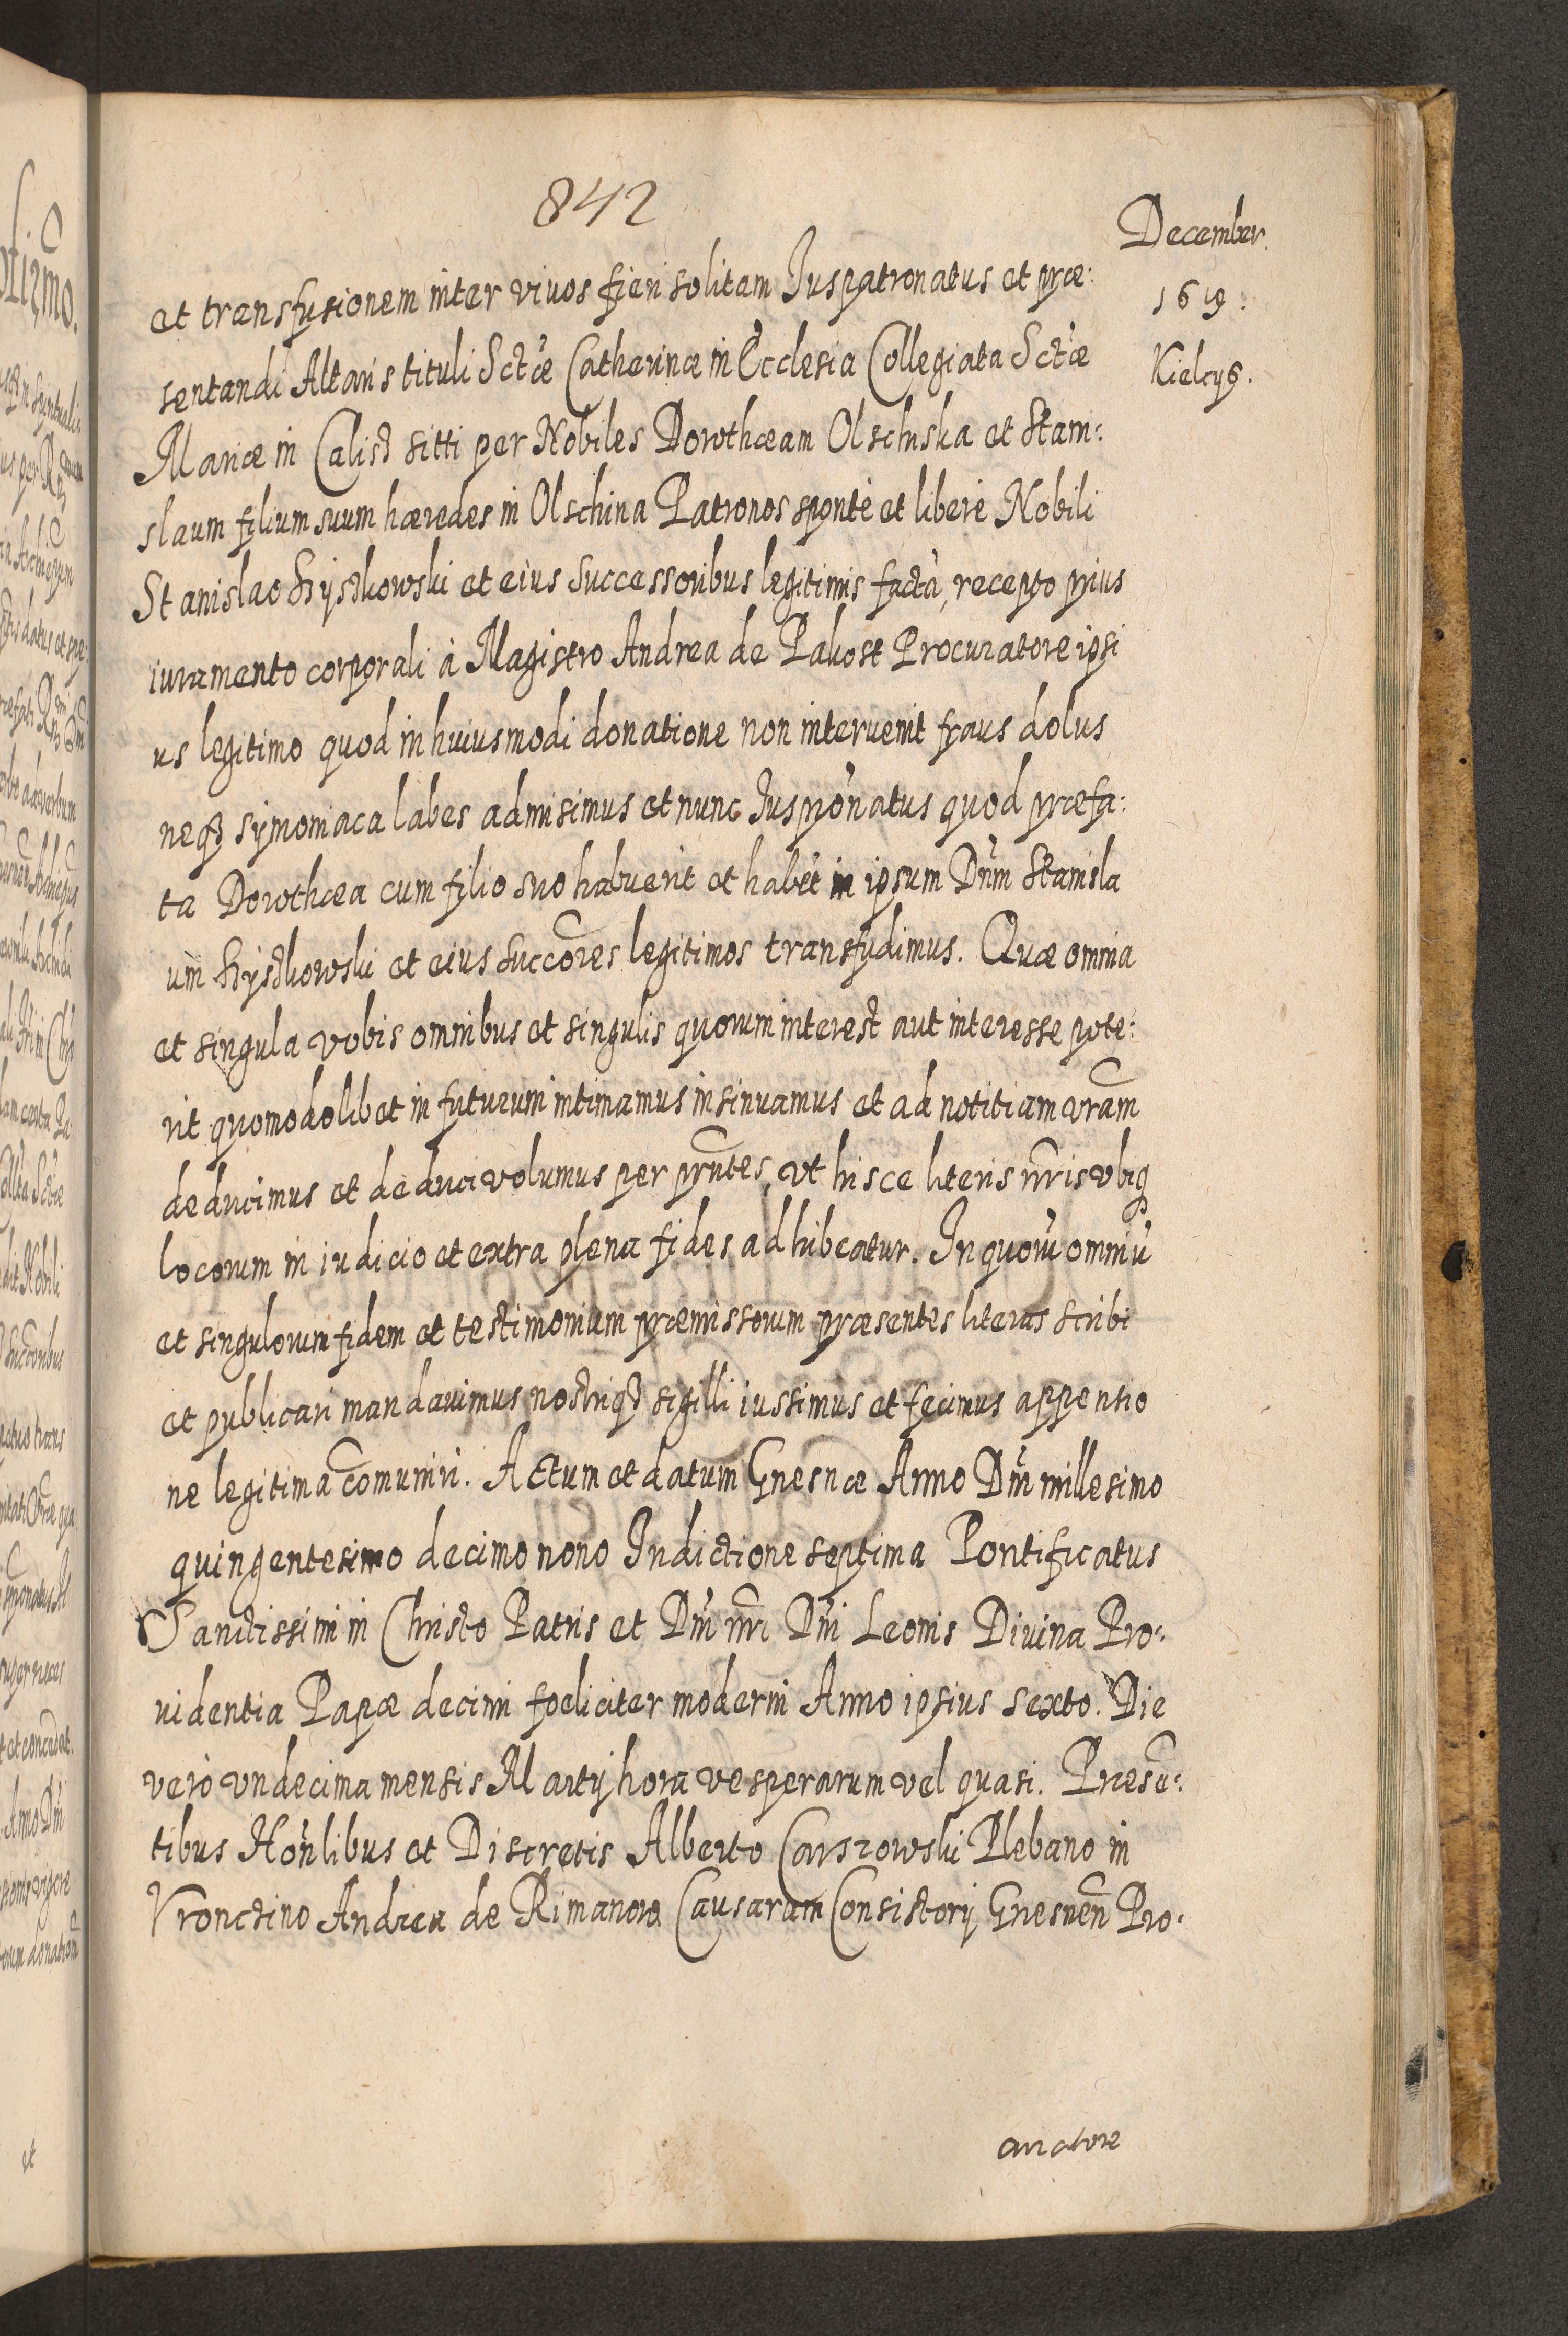 842
December.
1619.
Kielcys.
et transfusionem inter vivos fieri solitam Juspatronatus et præ:
sentandi Altaris tituli Sctæ Catherinæ in Ecclesia Collegiata Sctæ
Mariæ in Calisz sitti per Nobiles Dorothæam Olschnska et Stani:
slaum filium suum hæredes in Olschina Patronos sponte et libere Nobili
Stanislao et eius Successoribus legitimis factā, recepto prius
iuramento corporali à Magistro Andrea de Pakost Procuratore ipsi
us legitimo quod in huiusmodi donatione non interuenit fraus dolus
neq3 symoniaca labes admisimus et nunc Juspr̃onatus quod præfa:
ta Dorothæa cum filio suo habuerit et habet in ipsum Dñm Stanisla
um et eius Succc̃ores legitimos transfudimus. Quæ omnia
et singula vobis omnibus et singulis quorum interest aut interesse pote:
rit quomodolibet in futurum intimamus insinuamus et ad notitiam vr̃am
deducimus et deduci volumus per pñtes, vt hisce literis nr̃is vbiq
locorum in iudicio et extra plena fides adhibeatur. In quorũ omniũ
et singulorum fidem et testimonium præmissorum præsentes literas scribi
et publicari mandauimus nostriq3 sigilli iussimus et fecimus appensio
ne legitima com̃uniri. Actum et datum Gnesnæ Anno Dñi millesimo
quingentesimo decimo nono Indictione septima Pontificatus
Sanctissimi in Christo Patris et Dñi nr̃i Dñi Leonis Diuina Pro:
uidentia Papæ decimi foeliciter moderni Anno ipsius sexto. Die
vero vndecima mensis Martij hora vesperarum vel quasi. Præsẽ:
tibus Hoñlibus et Discretis Alberto Carszowski Plebano in
Vronczino Andrea de Rimanow Causarum Consistorij Gnesneñ Pro:
curatore